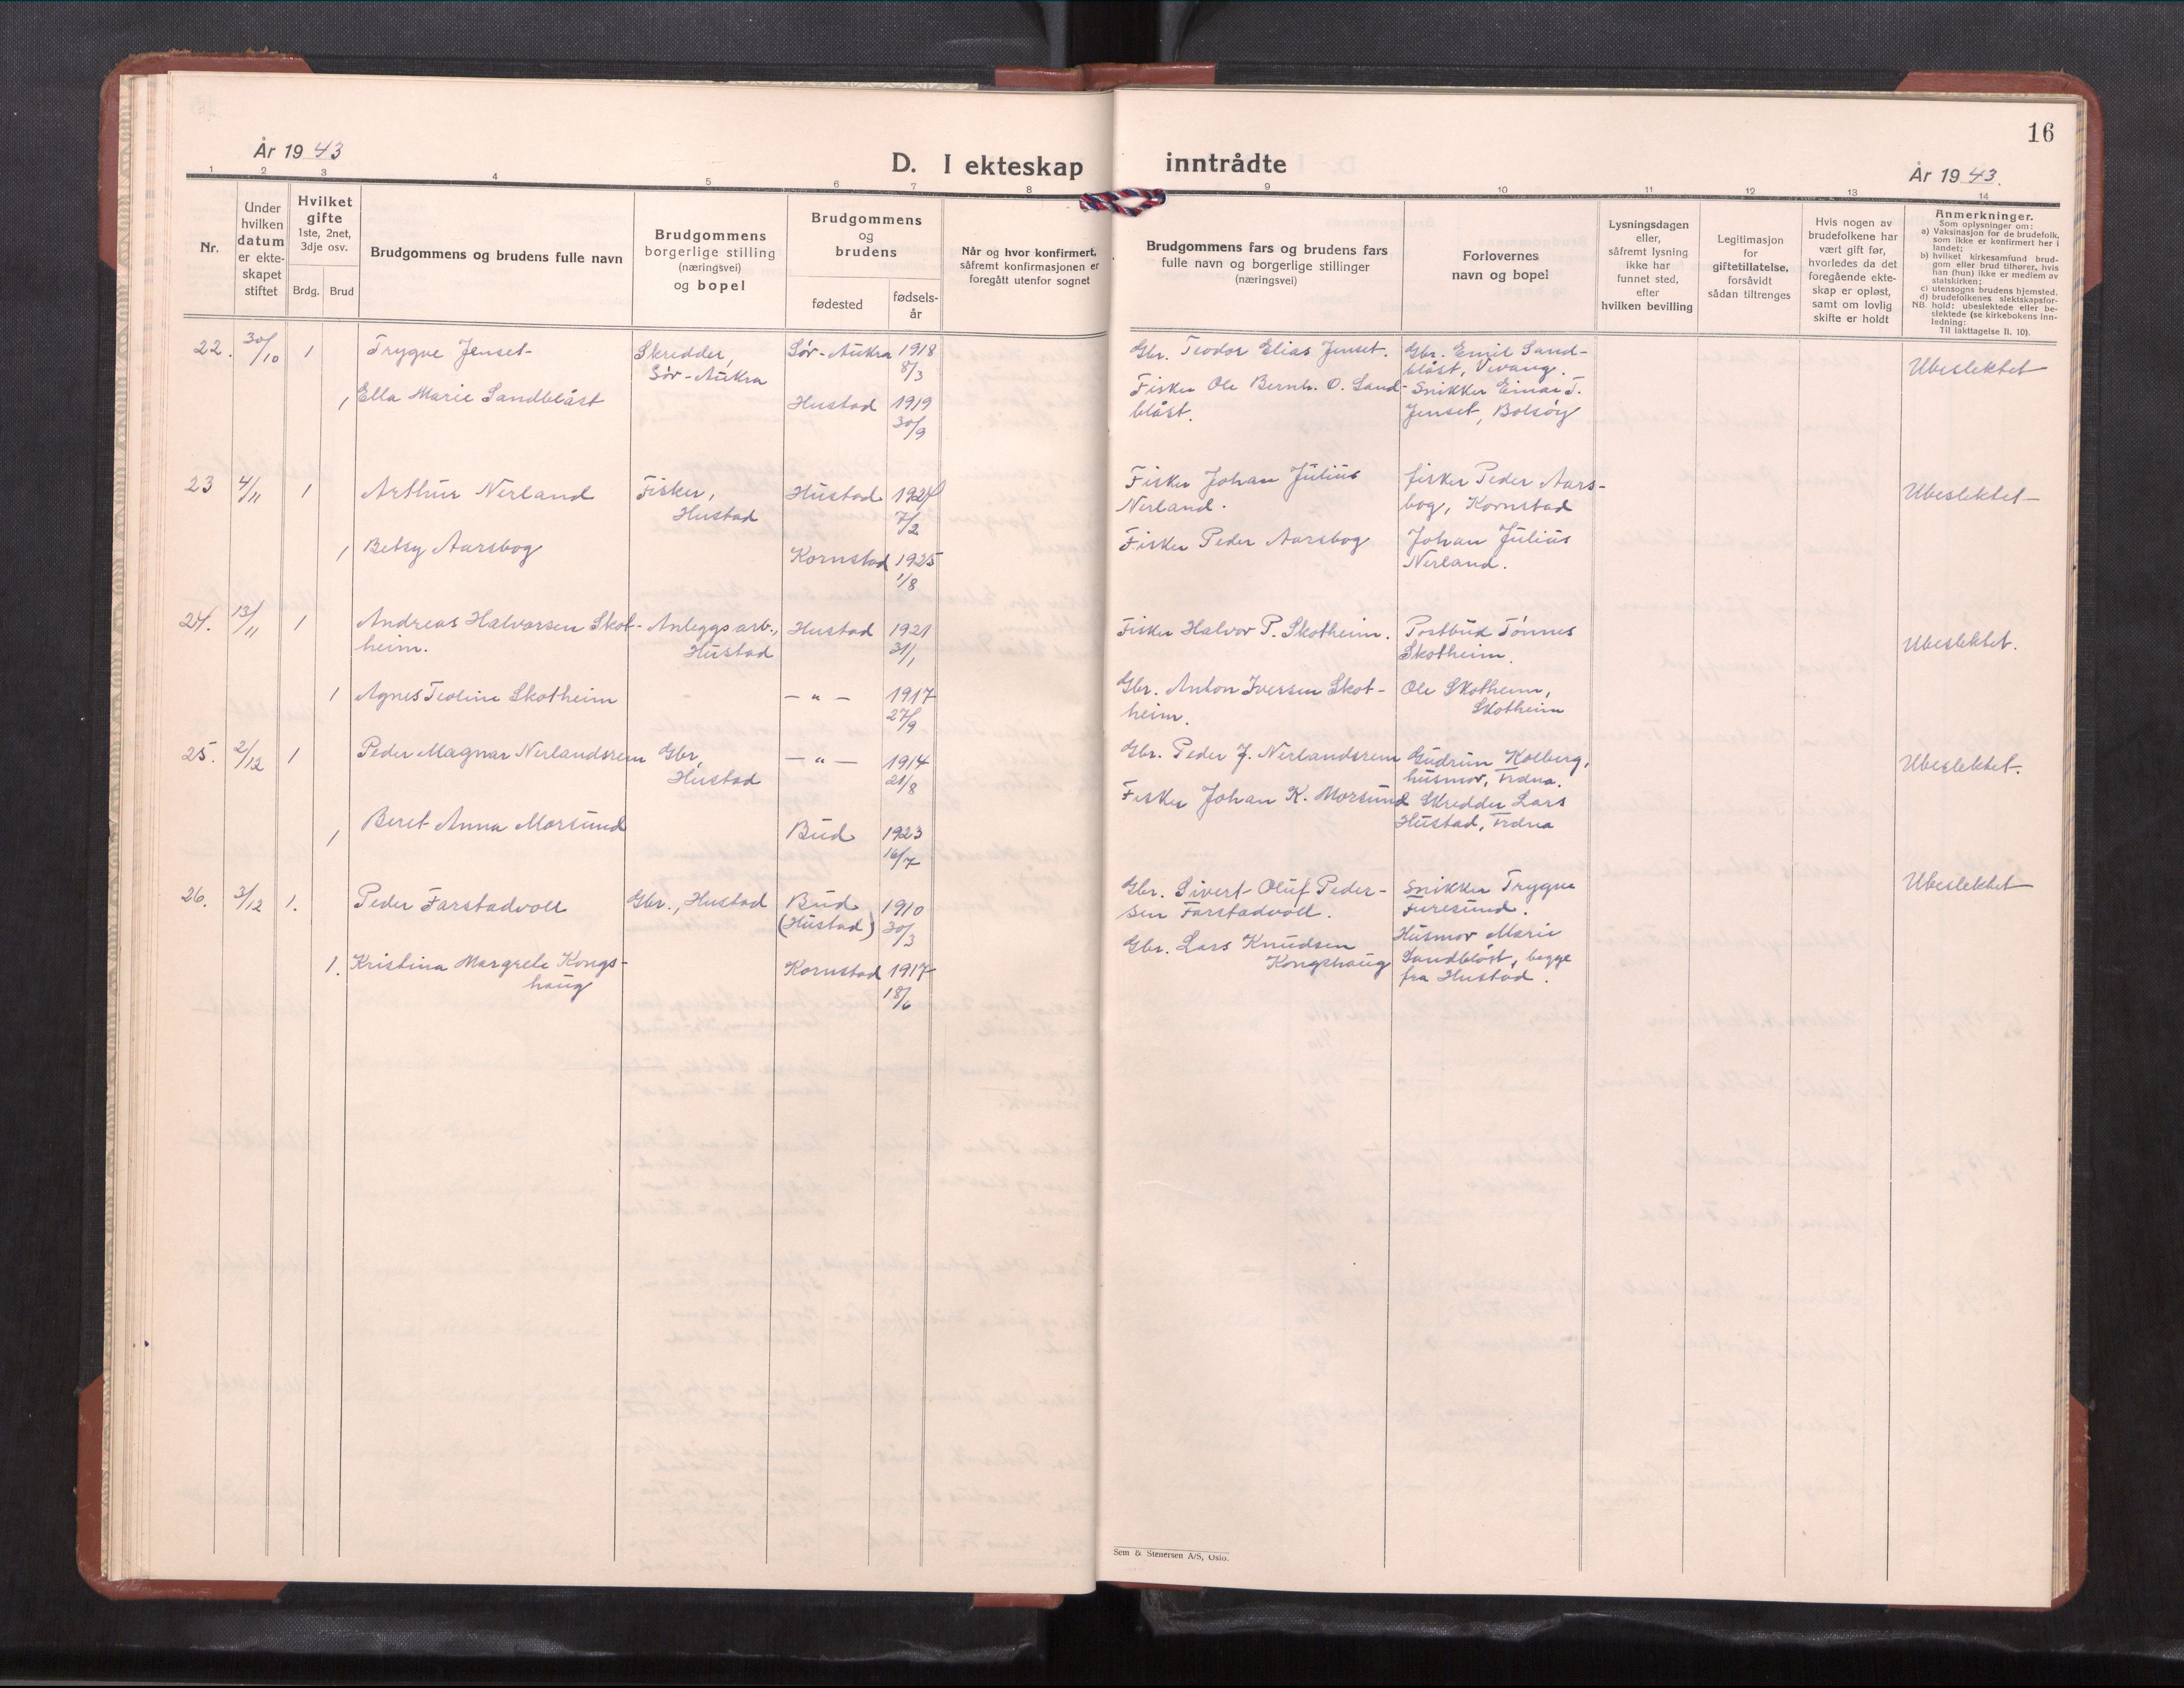 16
År 1943
D. I ekteskap inntrådte
År 1943.
1 2 3 4 5 6 7 8 9 10 11 12 13 14
Nr.
Under
hvilken
datum
er ekte-
skapet
stiftet
Hvilket
gifte
1ste, 2net,
3dje osv.
Brdg. Brud
Brudgommens og brudens fulle navn
Brudgommens
borgerlige stilling
(næringsvei)
og bopel
Brudgommens
og
brudens
fødested
fødsels-
år
Når og hvor konfirmert,
såfremt konfirmasjonen er
foregått utenfor sognet
Brudgommens fars og brudens fars
fulle navn og borgerlige stillinger
(næringsvei)
Forlovernes
navn og bopel
Lysningsdagen
eller,
såfremt lysning
ikke har
funnet sted,
efter
hvilken bevilling
Legitimasjon
for
giftetillatelse,
forsåvidt
sådan tiltrenges
Hvis nogen av
brudefolkene har
vært gift før,
hvorledes da det
foregående ekte-
skap er opløst,
samt om lovlig
skifte er holdt
Anmerkninger.
Som oplysninger om:
a) Vaksinasjon for de brudefolk,
som ikke er konfirmert her i
landet;
b) hvilket kirkesamfund brud-
gom eller brud tilhører, hvis
han (hun) ikke er medlem av
statskirken;
c) utensogns brudens hjemsted.
d) brudefolkenes slektskapsfor-
NB. hold: ubeslektede eller be-
slektede (se kirkebokens inn-
ledning:
Til iakttagelse II. 10).
22. 30/10 1 Trygve Jenset Skredder, Sør-Aukra 1918 Gbr. Teodor Elias Jenset. Gbr. Emil Sand- Ubeslektet
Sør-Aukra 8/3 blåst, Vevang.
1 Ella Marie Sandblåst Hustad 1919 Fisker Ole Bernh. O. Sand- Snikker Einar T.
30/9 blåst. Jenset, Bolsøy
23 4/11 1 Arthur Nerland Fisker, Hustad 1921 Fisker Johan Julius fisker Peder Aars- Ubeslektet
Hustad 7/2 Nerland. bog, Kornstad
1 Betsy Aarsbog Kornstad 1925 Fisker Peder Aarsbog Johan Julius
1/8 Nerland.
24. 13/11 1 Andreas Halvorsen Skot- Anleggsarb., Hustad 1921 Fisker Halvor P. Skotheim. Postbud Tønnes Ubeslektet.
heim. Hustad 31/1 Skotheim.
1 Agnes Teoline Skotheim - — " — 1917 Gbr. Anton Iversen Skot- Ole Skotheim,
27/9 heim. Skotheim
25. 2/12 1 Peder Magnar Nerlandsrem Gbr, — " — 1914 Gbr. Peder J. Nerlandsrem Gudrun Kolberg, Ubeslektet.
Hustad 21/8 husmor,
1 Beret Anna Morsund Bud 1923 Fisker Johan K. Morsund Skredder Lars
16/7 Hustad,
26. 3/12 1. Peder Farstadvoll Gbr., Hustad Bud 1910 Gbr. Sivert Oluf Peder- Snikker Trygve Ubeslektet
(Hustad) 30/3 sen Farstadvoll. Furesund.
1. Kristina Margrete Kongs- Kornstad 1917 Gbr. Lars Knudsen Husmor Marie
haug 18/6 Kongshaug Sandblåst, begge
fra Hustad.
Sem & Stenersen A/S, Oslo.